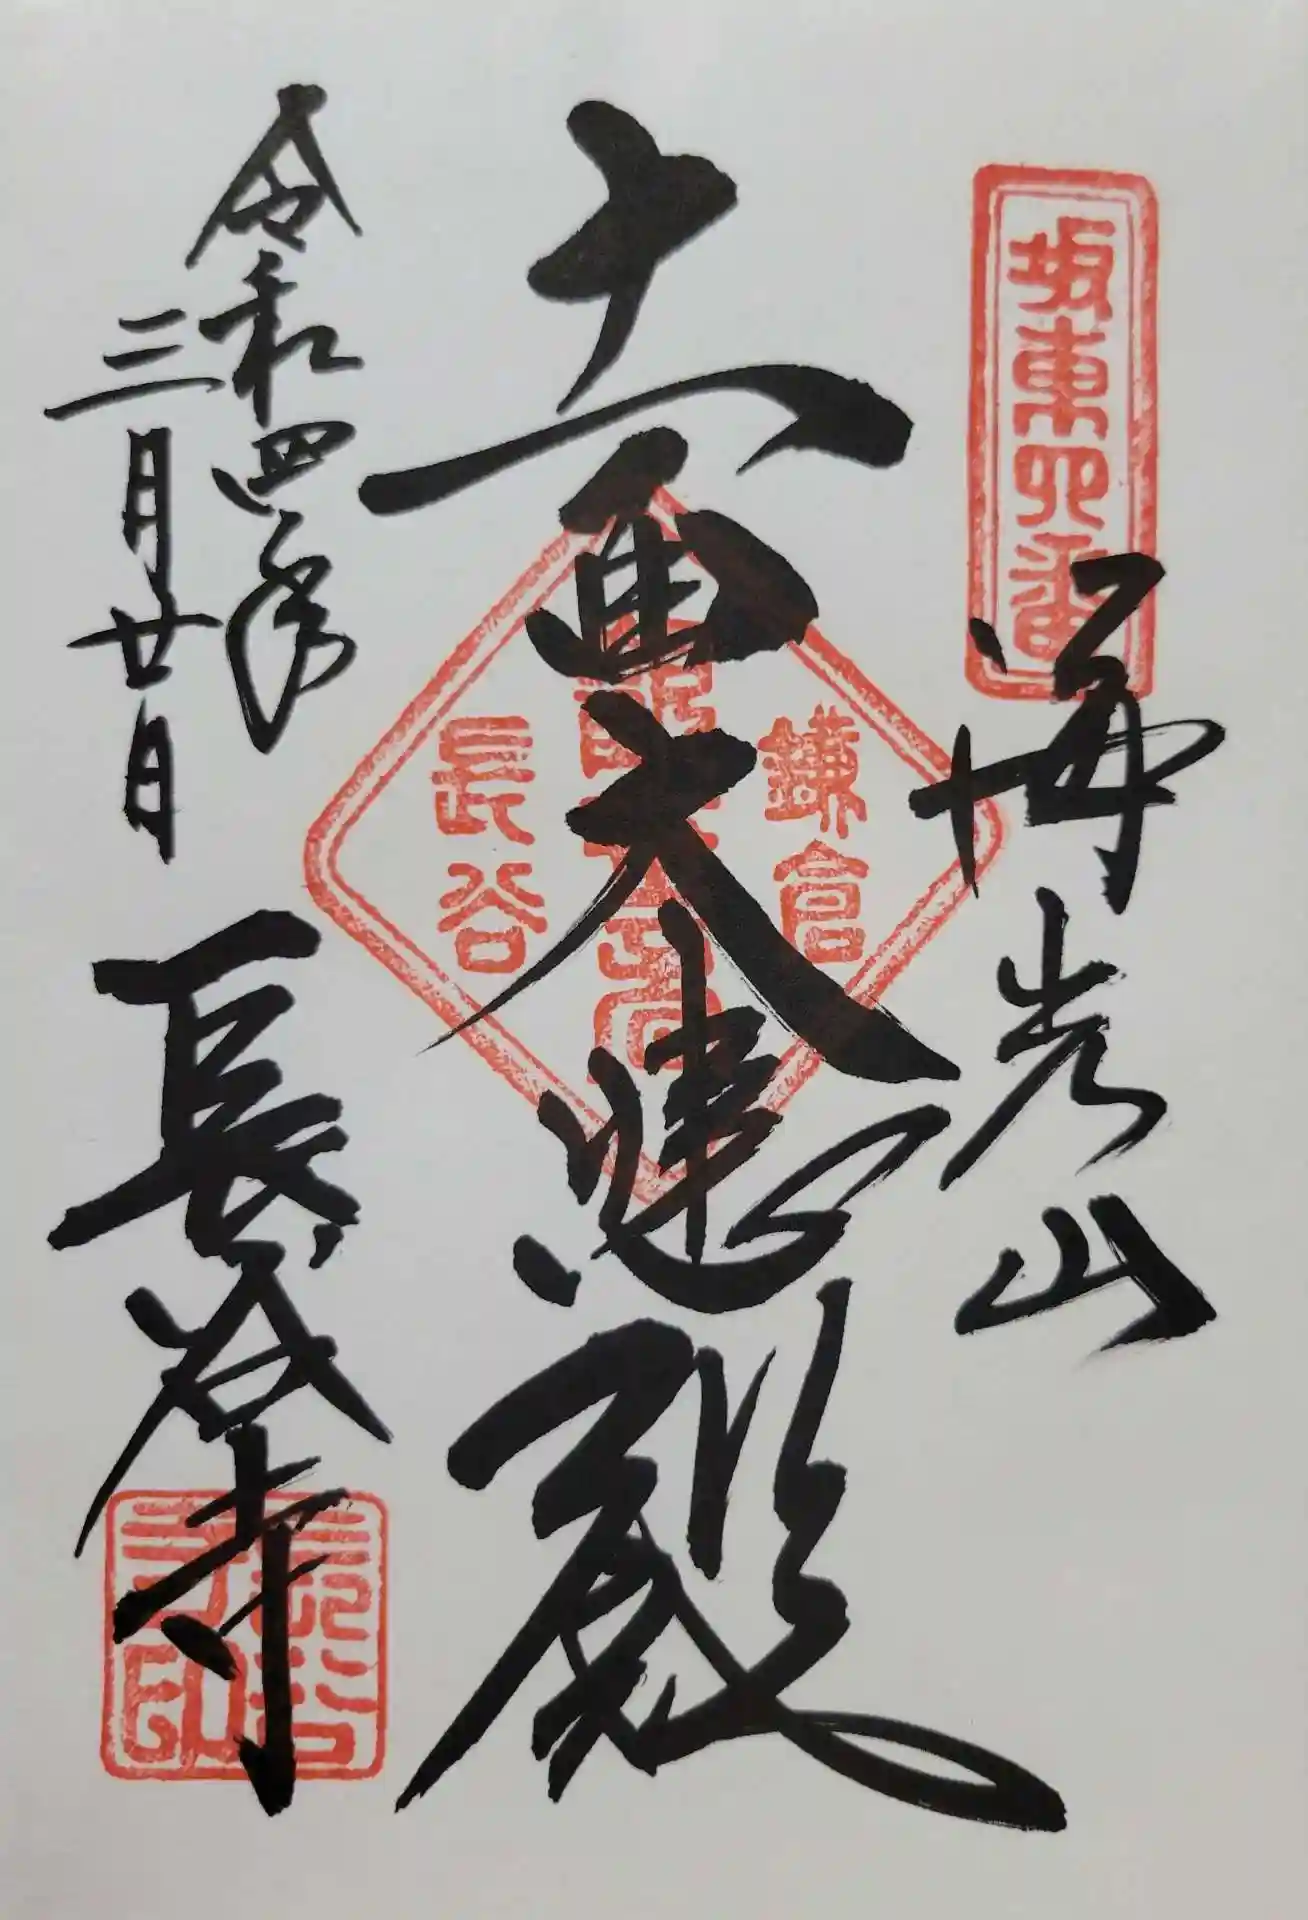 坂東四番
海光山
十一面大悲殿
鎌倉
長谷
令和四年
三月廿日
長谷寺
長谷
寺印